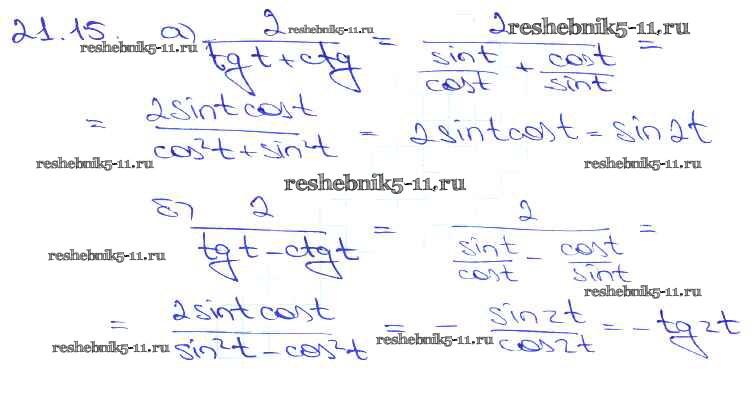 21.15. а) 2/(tg t + ctg) = 2/(sin t/cos t + cos t/sin t) =
reshebnik5-11.ru reshebnik5-11.ru reshebnik5-11.ru
= 2 sin t cos t/(cos²t + sin²t) = 2 sin t cos t = sin 2t
reshebnik5-11.ru reshebnik5-11.ru
reshebnik5-11,ru
б) 2/(tg t - ctg t) = 2/(sin t/cos t - cos t/sin t) =
reshebnik5-11.ru
reshebnik5-11.ru
= 2 sin t cos t/(sin²t - cos²t) = - sin 2t/cos 2t = - tg 2t
reshebnik5-11.ru reshebnik5-11.ru